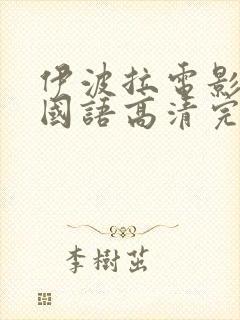 伊波拉電影
國語高清完
李樹茁